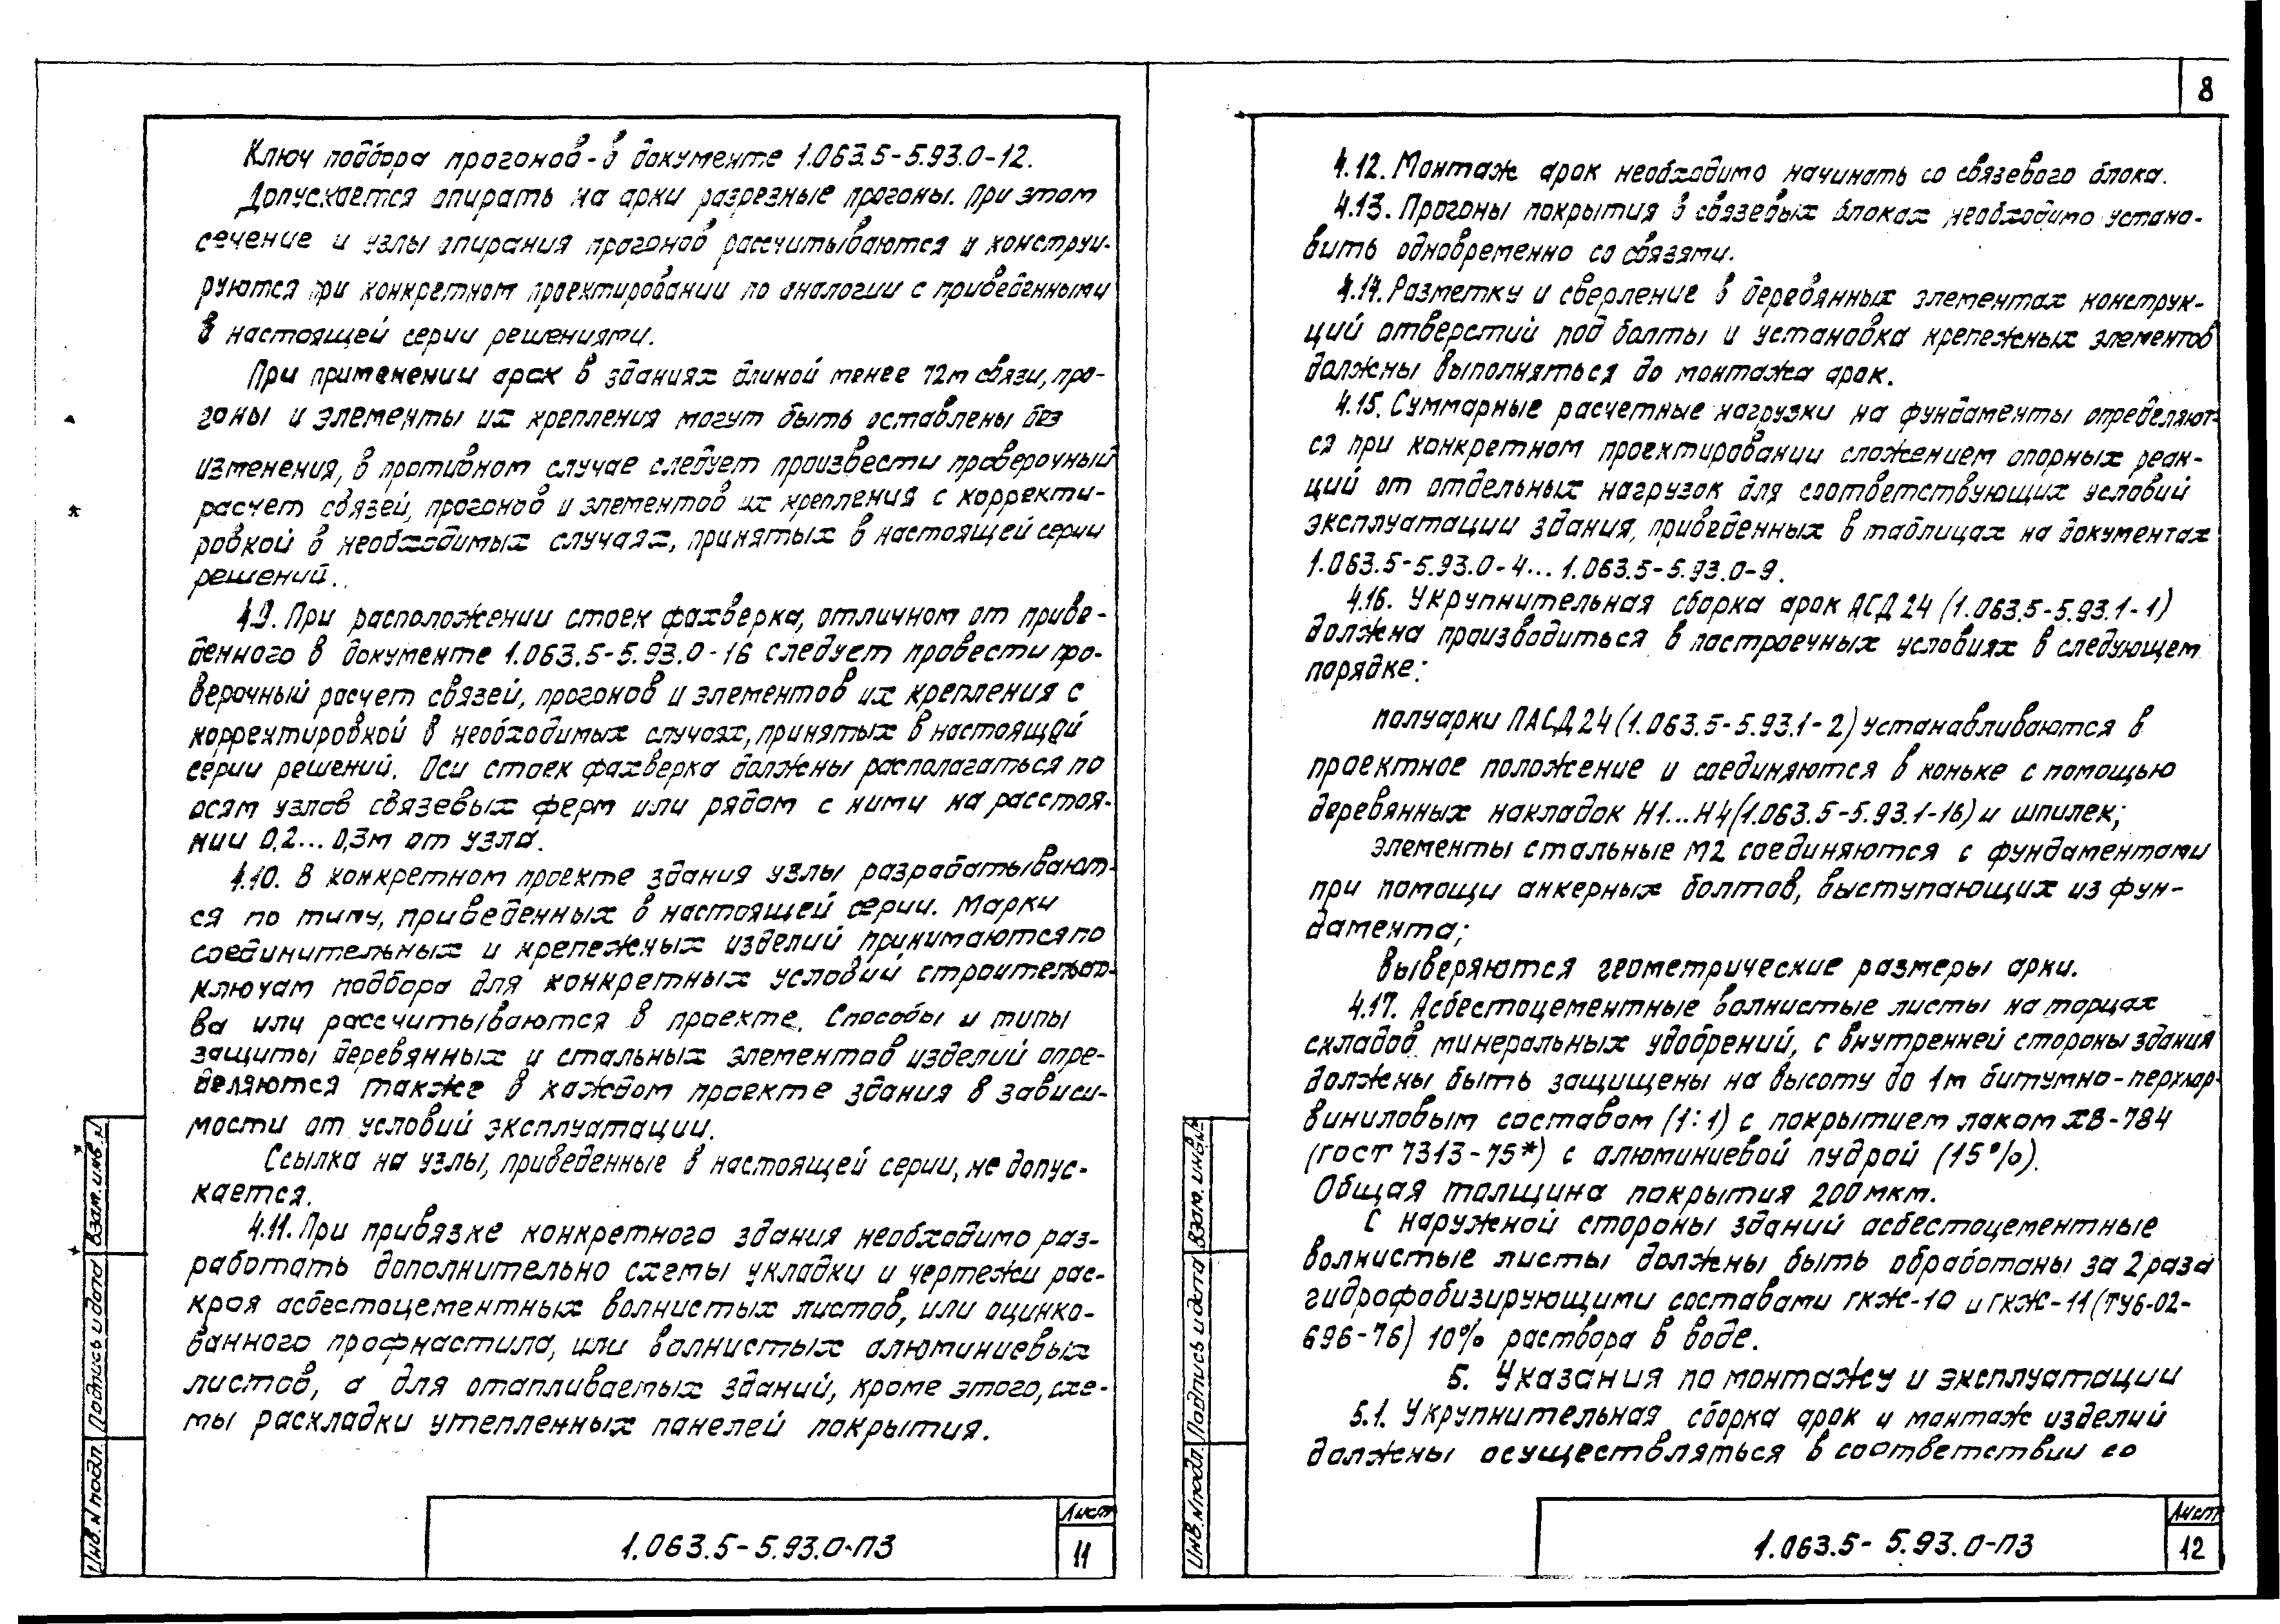 Ключ подбора прогонов - в документе 1.063.5-5.93.0-12.
Допускается опирать на арки разрезные прогоны. При этом
сечение и узлы опирания прогонов рассчитываются и конструи-
руются при конкретном проектировании по аналогии с приведенными
в настоящей серии решениями.
При применении арок в зданиях длиной менее 72м связи, про-
гоны и элементы их крепления могут быть оставлены без
изменения, в противном случае следует произвести проверочный
расчет связей, прогонов и элементов их крепления с корректи-
ровкой в необходимых случаях, принятых в настоящей серии
решений.
4.9. При расположении стоек фахверка, отличном от приве-
денного в документе 1.063.5-5.93.0-16 следует провести про-
верочный расчет связей, прогонов и элементов их крепления с
корректировкой в необходимых случаях, принятых в настоящей
серии решений. Оси стоек фахверка должны располагаться по
осям узлов связевых ферм или рядом с ними на расстоя-
нии 0,2...0,3м от узла.
4.10. В конкретном проекте здания узлы разрабатывают-
ся по типу, приведенных в настоящей серии. Марки
соединительных и крепежных изделий принимаются по
ключам подбора для конкретных условий строительст-
ва или рассчитываются в проекте. Способы и типы
защиты деревянных и стальных элементов изделий опре-
деляются также в каждом проекте здания в зависи-
мости от условий эксплуатации.
Ссылка на узлы, приведенные в настоящей серии, не допус-
кается.
4.11. При привязке конкретного здания необходимо раз-
работать дополнительно схемы укладки и чертежи рас-
кроя асбестоцементных волнистых листов, или оцинко-
ванного профнастила, или волнистых алюминиевых
листов, а для отапливаемых зданий, кроме этого, схе-
мы раскладки утепленных панелей покрытия.
Инв. N подл. Подпись и дата Взам. инв. N
1.063.5-5.93.0-ПЗ
Лист
11
8
4.12. Монтаж арок необходимо начинать со связевого блока.
4.13. Прогоны покрытия в связевых блоках необходимо устано-
вить одновременно со связями.
4.14. Разметку и сверление в деревянных элементах конструк-
ций отверстий под болты и установка крепежных элементов
должны выполняться до монтажа арок.
4.15. Суммарные расчетные нагрузки на фундаменты определяют-
ся при конкретном проектировании сложением опорных реак-
ций от отдельных нагрузок для соответствующих условий
эксплуатации здания, приведенных в таблицах на документах
1.063.5-5.93.0-4... 1.063.5-5.93.0-9.
4.16. Укрупнительная сборка арок АСД 24 (1.063.5-5.93.1-1)
должна производиться в построечных условиях в следующем
порядке:
полуарки ПАСД 24 (1.063.5-5.93.1-2) устанавливаются в
проектное положение и соединяются в коньке с помощью
деревянных накладок Н1...Н4 (1.063.5-5.93.1-16) и шпилек;
элементы стальные М2 соединяются с фундаментами
при помощи анкерных болтов, выступающих из фун-
дамента;
выверяются геометрические размеры арки.
4.17. Асбестоцементные волнистые листы на торцах
складов минеральных удобрений, с внутренней стороны здания
должны быть защищены на высоту до 1м битумно-перхлор-
виниловым составом (1:1) с покрытием лаком ХВ-784
(ГОСТ 7313-75*) с алюминиевой пудрой (15%).
Общая толщина покрытия 200 мкм.
С наружной стороны зданий асбестоцементные
волнистые листы должны быть обработаны за 2 раза
гидрофобизирующими составами ГКЖ-10 и ГКЖ-11 (ТУ6-02-
696-76) 10% раствора в воде.
5. Указания по монтажу и эксплуатации
5.1. Укрупнительная сборка арок и монтаж изделий
должны осуществляться в соответствии со
Инв. N подл. Подпись и дата Взам. инв. N
1.063.5-5.93.0-ПЗ
Лист
12